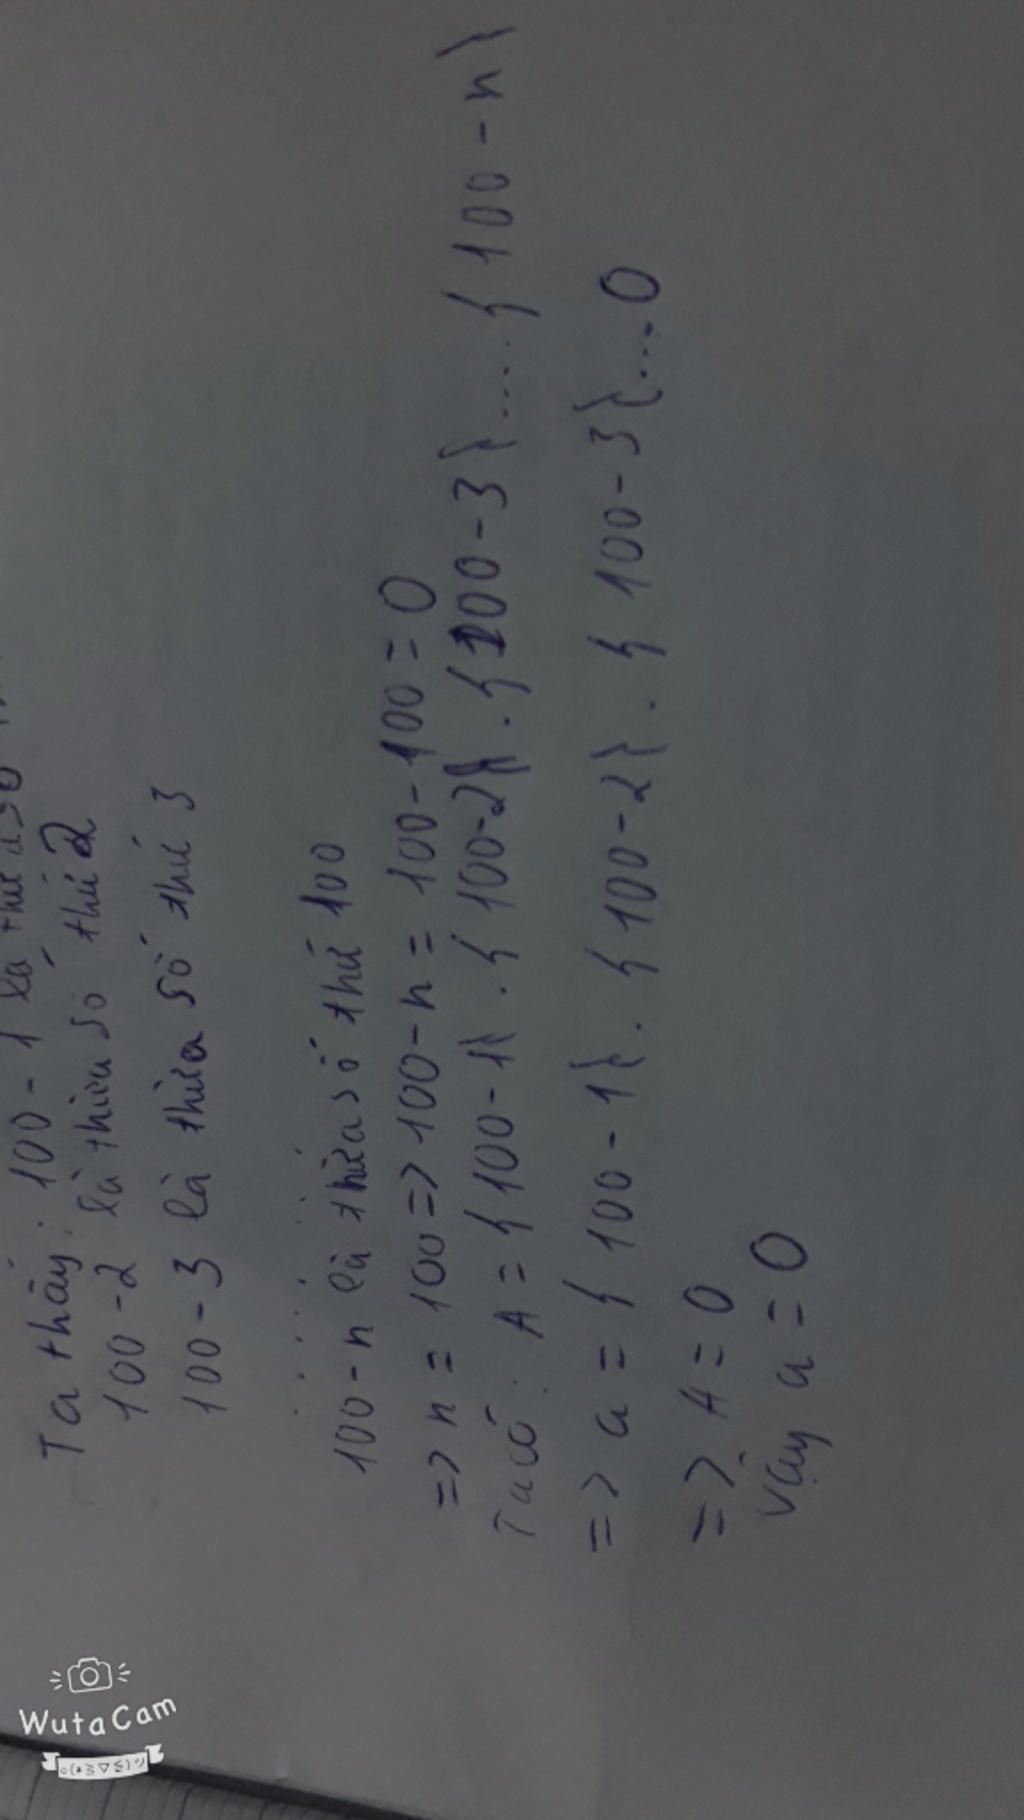 Ta thấy: 100 - 1 là thừa số
100 - 2 là thừa số thứ 2
100 - 3 là thừa số thứ 3
. . . . . .
100 - n là thừa số thứ 100
=> n = 100 => 100 - n = 100 - 100 = 0
Ta có: A = { 100 - 1} . { 100 - 2} . { 100 - 3} .... { 100 - n}
=> a = { 100 - 1} . { 100 - 2} . { 100 - 3} .... 0
=> A = 0
Vậy a = 0
WutaCam